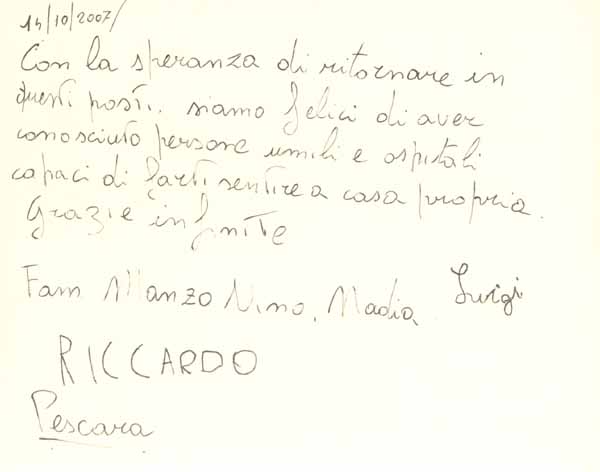 14/10/2007/
Con la speranza di ritornare in
questi posti. siamo felici di aver
conosciuto persone umili e ospitali
capaci di farti sentire a casa propria.
Grazie infinite
Fam Manzo Nino, Nadia, Luigi
RICCARDO
Pescara